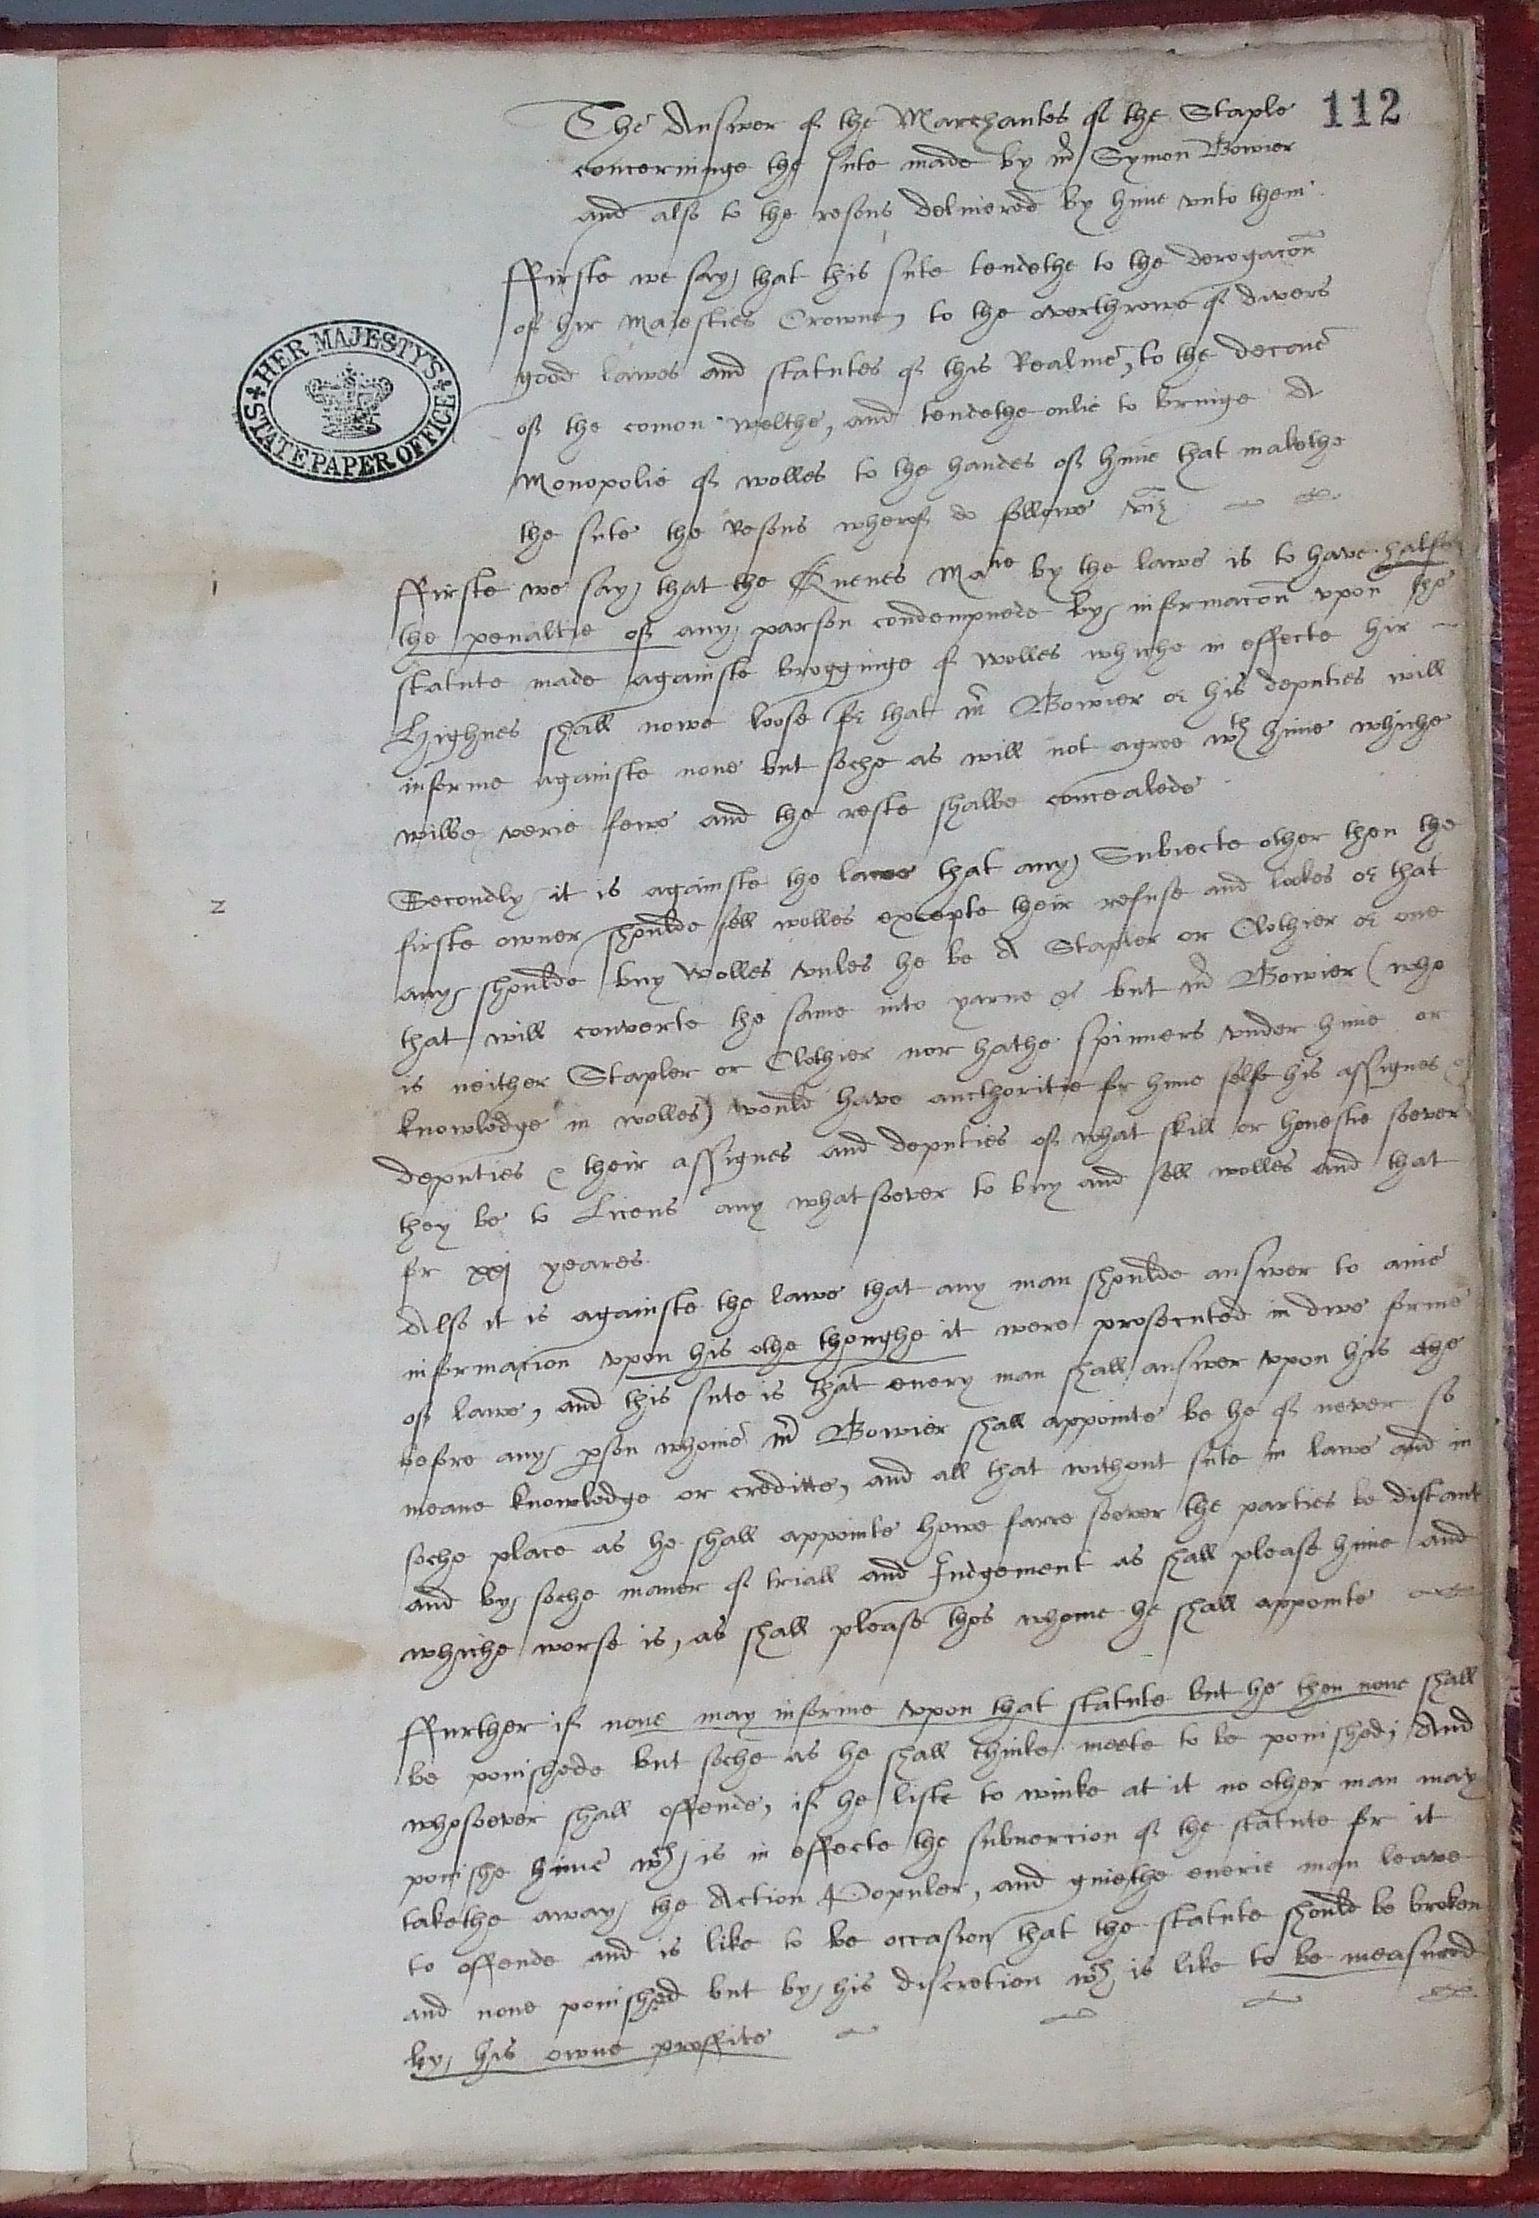 112
The Answer of the Marchantes of the Staple
concerninge the sute made by mr Symon Bowier
and also to the resons deliuered by hime vnto them.
HER MAJESTY'S STATE PAPER OFFICE
ffirste we say that this sute tendethe to the derogacon
of hir Maiesties Crowne, to the overthrowe of divers
good lawes and statutes of this Realme, to the decaye
of the comon welthe, and tendethe onlie to bringe A
Monopolie of wolles to the handes of hime that makethe
the sute the Resons wherof do followe viz
1
ffirste we say that the Quenes Matie by the lawe is to have halfe
the penaltie of any parson condempnede by informacon vpon the
statute made againste brogginge of wolles whiche in effecte hir
Highnes shall nowe loose for that mr Bowier or his deputies will
informe againste none but soche as will not agree wth hime whiche
wilbe verie fewe and the reste shalbe concealede.
2
Secondly it is againste the lawe that any Subiecte other then the
firste owner shoulde sell wolles excepte their refuse and lockes or that
any shoulde buy wolles vnles he be A Stapler or Clothier or one
that will converte the same into yarne &c but mr Bowier (who
is neither Stapler or Clothier nor hathe spinners vnder hime or
knowledge in wolles) would have aucthoritie for hime selfe his assignes
deputies & their assignes and deputies of what skill or honestie soever
they be to Licens any whatsoever to buy and sell wolles and that
for xxj yeares.
Also it is againste the lawe that any man shoulde answer to anie
informacion vpon his othe thoughe it were prosecuted in dwe forme
of lawe, and this sute is that euery man shall answer vpon his othe
before any pson whome mr Bowier shall appointe be he of never so
meane knowledge or creditte, and all that without sute in lawe and in
soche place as he shall appointe howe farre soever the parties be distant
and by soche maner of triall and Iudgement as shall please hime and
whiche worse is, as shall please thos whome he shall appointe
ffurther if none may informe vpon that statute but he then none shall
be ponishede but soche as he shall thinke meete to be ponished; And
whosoever shall offende, if he liste to winke at it no other man may
ponishe hime wch is in effecte the subuercion of the statute for it
takethe away the Action Populer, and giuethe euerie man leave
to offende and is like to be occasion that the statute should be broken
and none ponished but by his discretion wch is like to be measured
by his owne proffite